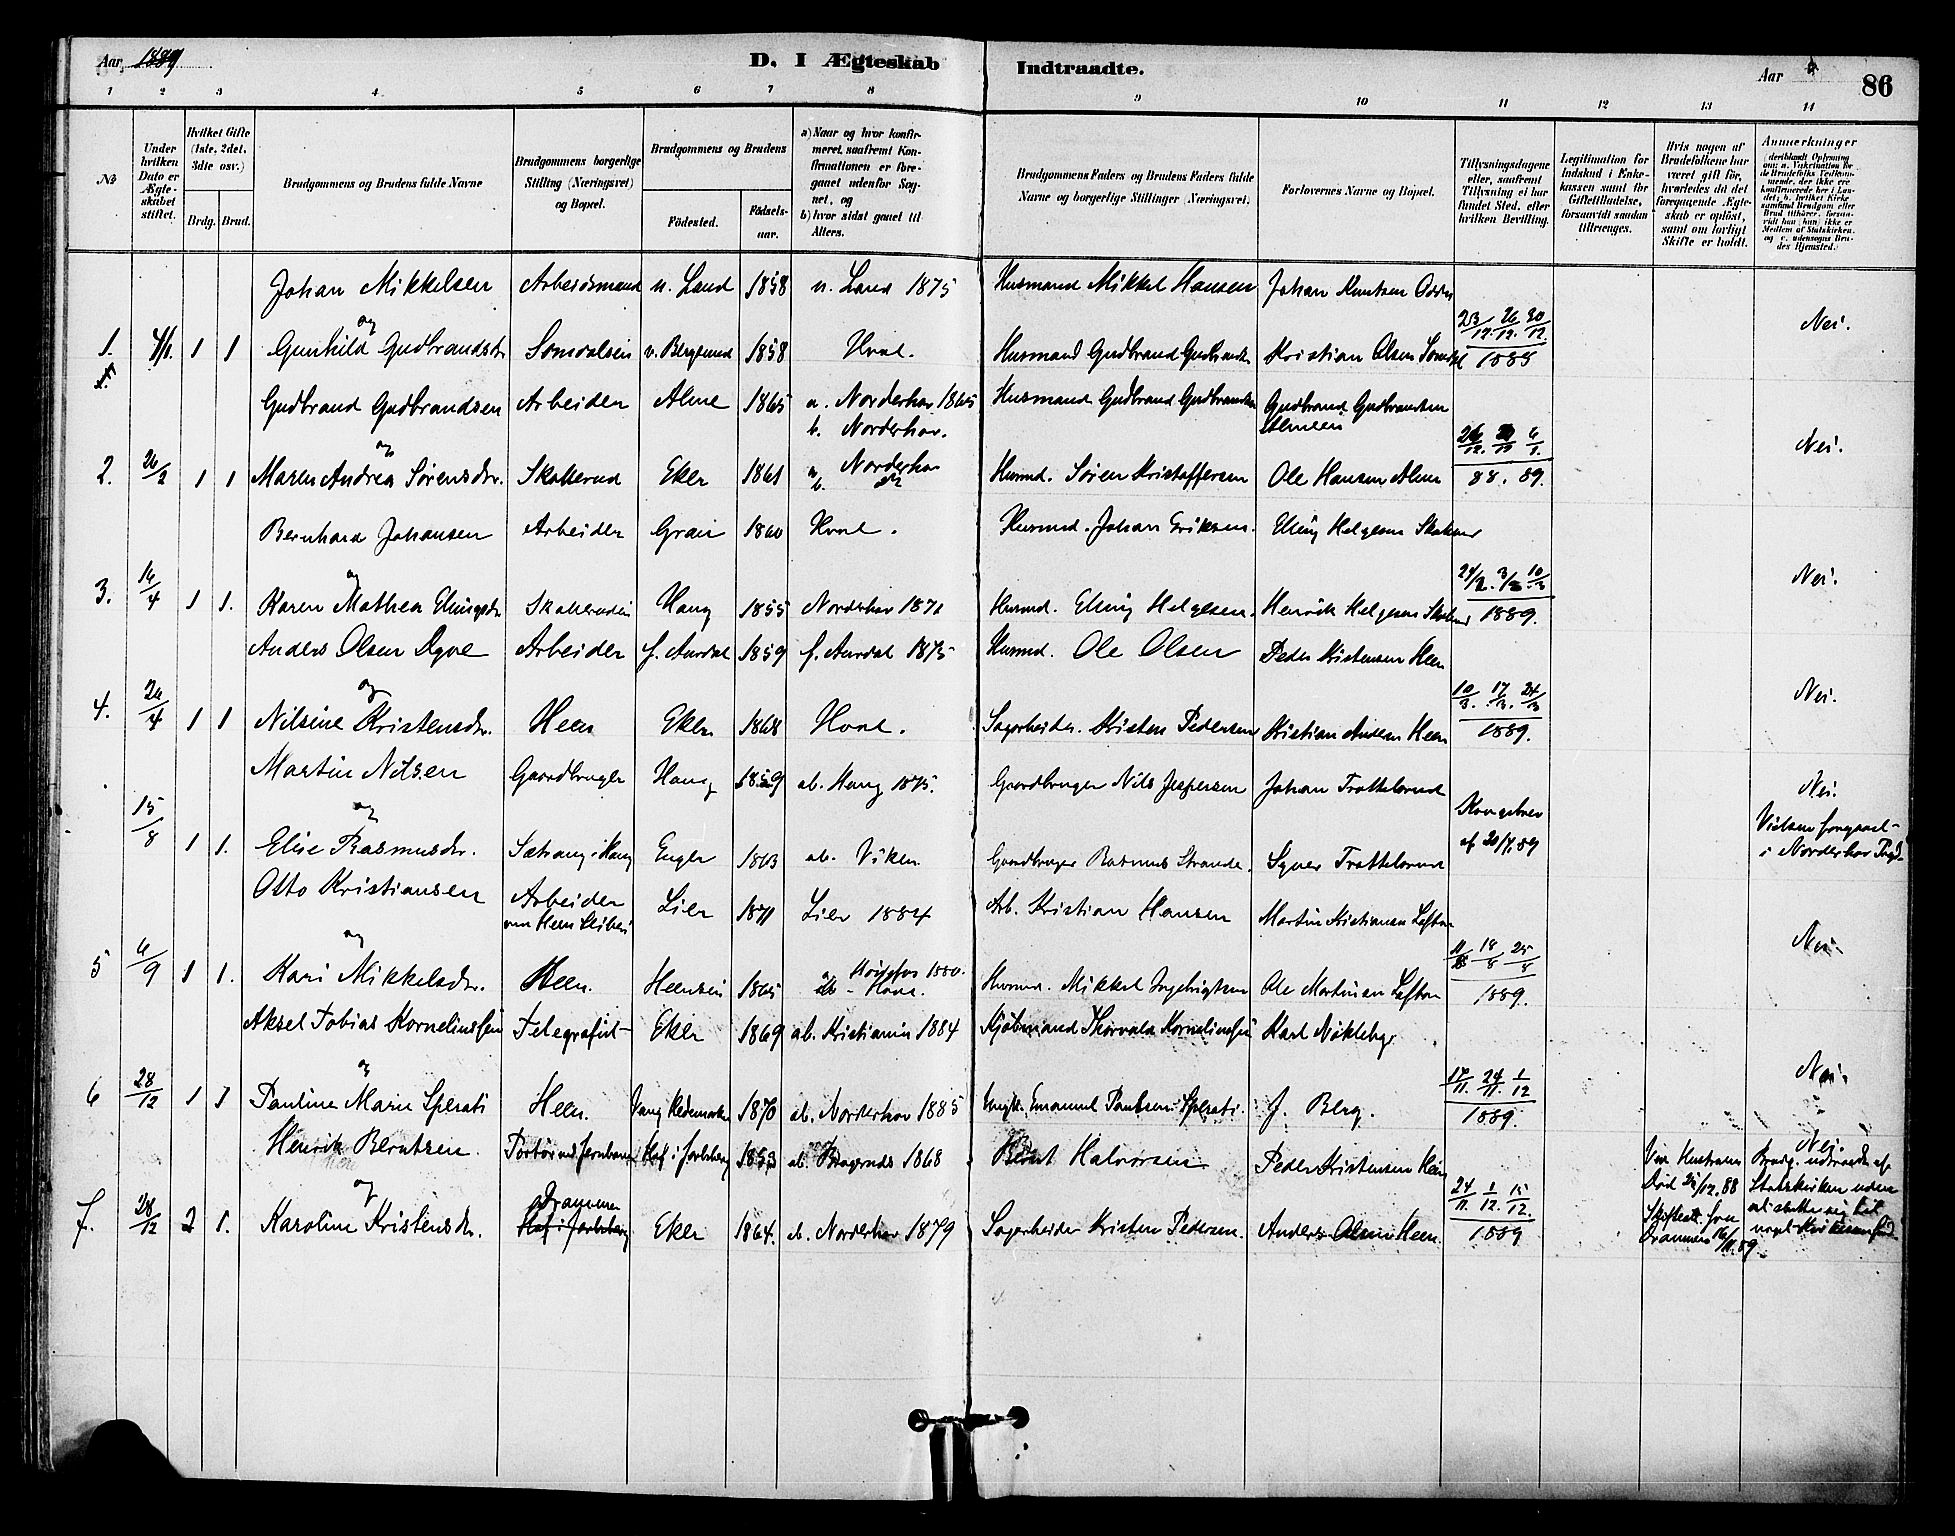 Aar, 1889
D. I Ægteskab Indtraadte.
Aar
86
1 2 3 4 5 6 7 8 9 10 11 12 13 14
No
Under hvilken Dato er Ægteskabet stiftet.
Hvilket Gifte (1ste, 2det, 3die osv.)
Brdg. Brud.
Brudgommens og Brudens fulde Navne
Brudgommens borgerlige Stilling (Næringsvei) og Bopæl.
Brudgommens og Brudens
Födested.
Födselsaar.
a) Naar og hvor konfirmeret, saafremt Konfirmationen er foregaaet udenfor Sognet, og
b) hvor sidst gaaet til Alters.
Brudgommens Faders og Brudens Faders fulde Navne og borgerlige Stillinger (Næringsvei.
Forlovernes Navne og Bopæl.
Tillysningsdagene eller, saafremt Tillysning ei har fundet Sted, efter hvilken Bevilling.
Legitimation for Indskud i Enkekassen samt for Giftetilladelse, forsaavidt saadan tiltrænges.
Hvis nogen af Brudefolkene har været gift för, hvorledes da det foregaaende Ægteskab er oplöst, samt om lovligt Skifte er holdt.
Anmerkninger
Johan Mikkelsen Arbeidsmand n. Land 1858 n. Land 1875 Husmand Mikkel Hansen Johan Knutsen
og
1. 4/1. 1 1 Gunhild Gudbrandsdr. Somdalseie v. Bergsund 1858 Hval. Husmand Gudbrand Gudbrandsen Kristian Olsen Somdal 23/12. 26/12. 30/12. 1888 Nei.
Gudbrand Gudbrandsen Arbeider Alme 1865 a. Norderhov b. Norderhov. Husmand Gudbrand Gudbrandsen Gudbrand Gudbrandsen
og
2. 1 1 Maren Andrea Sørensdr. Skollerud Eker 1861 a. Norderhov b. Husmd. Søren Kristoffersen Ole Hansen Alme 26/12. 6/1. 88. 89. Nei.
Bernhard Johansen Arbeider Gran 1860 Hval. Husmd. Johan Eriksen. Elling Helgesen
og
3. 16/4 1 1. Karen Mathea Ellingsdr. Skollerudeie Haug 1855 Norderhov 1871 Husmd. Elling Helgesen. Henrik Helgesen 24/2. 3/3. 10/3 1889. Nei.
Anders Olsen Dyve Arbeider s. Aurdal 1859 s. Aurdal 1875 Husmd. Ole Olsen Peder Kristensen Heen
og
4. 1 1 Nilsine Kristensdr. Heen Eker 1868 Hval. Sagarbeider. Kristen Pedersen Kristian Andersen Heen 10/3. 17/3. 24/3 1889. Nei.
Martin Nilsen Gaardbruger Haug 1859 ab. Haug 1875. Gaardbruger Nils Jespersen Johan Trøttelsrud
og
15/8 1 1. Elise Rasmusdr. Sætrang i Haug Enger 1863 ab. Viker. Gaardbruger Rasmus Strande. Syver Trøttelsrud Kongebrev af 20/7.89 Nei. Vielsen foregaaet i Norderhov
Otto Kristiansen Arbeider Lier 1871 Lier 1884 Arb. Kristian Hansen Martin Kristiansen
og
5 6/9 1 1. Kari Mikkelsdr. Heen. Heenseie 1865 1880. Hval. Husmd. Mikkel Ingebrigtsen Ole Martinsen 11/8 18/8 25/8 1889. Nei.
Aksel Tobias Korneliussen Telegrafist Eker 1869 ab. Kristiania 1884 Kjøbmand Thorvald Korneliussen Karl Nøkleby
og
6 28/12 1 1 Pauline Marie Sperati Heen. Vang Hedemarken 1870 ab. Norderhov 1885 Emanuel Paulsen Sperati. J. Berg. 17/11. 24/11. 1/12 1889. Nei.
Henrik Berntsen. Hof i Jarlsberg 1853 ab. Bragernes 1868 Bernt Halvorsen Peder Kristensen Heen
og
7. 28/12 2 1. Karoline Kristensdr. Drammen Hof i Jarlsberg Eker 1864. ab. Norderhov 1879 Sagarbeider Kristen Pedersen. Anders Olsen Heen. 24/11. 1/12. 15/12. 1889
Hustruen død 25/12.88 Skifteatt. fra Drammen 16/11.89.
Nei. Brudg. udtraadt af Statskirken uden at slutte sig til noget Kirkesamfund